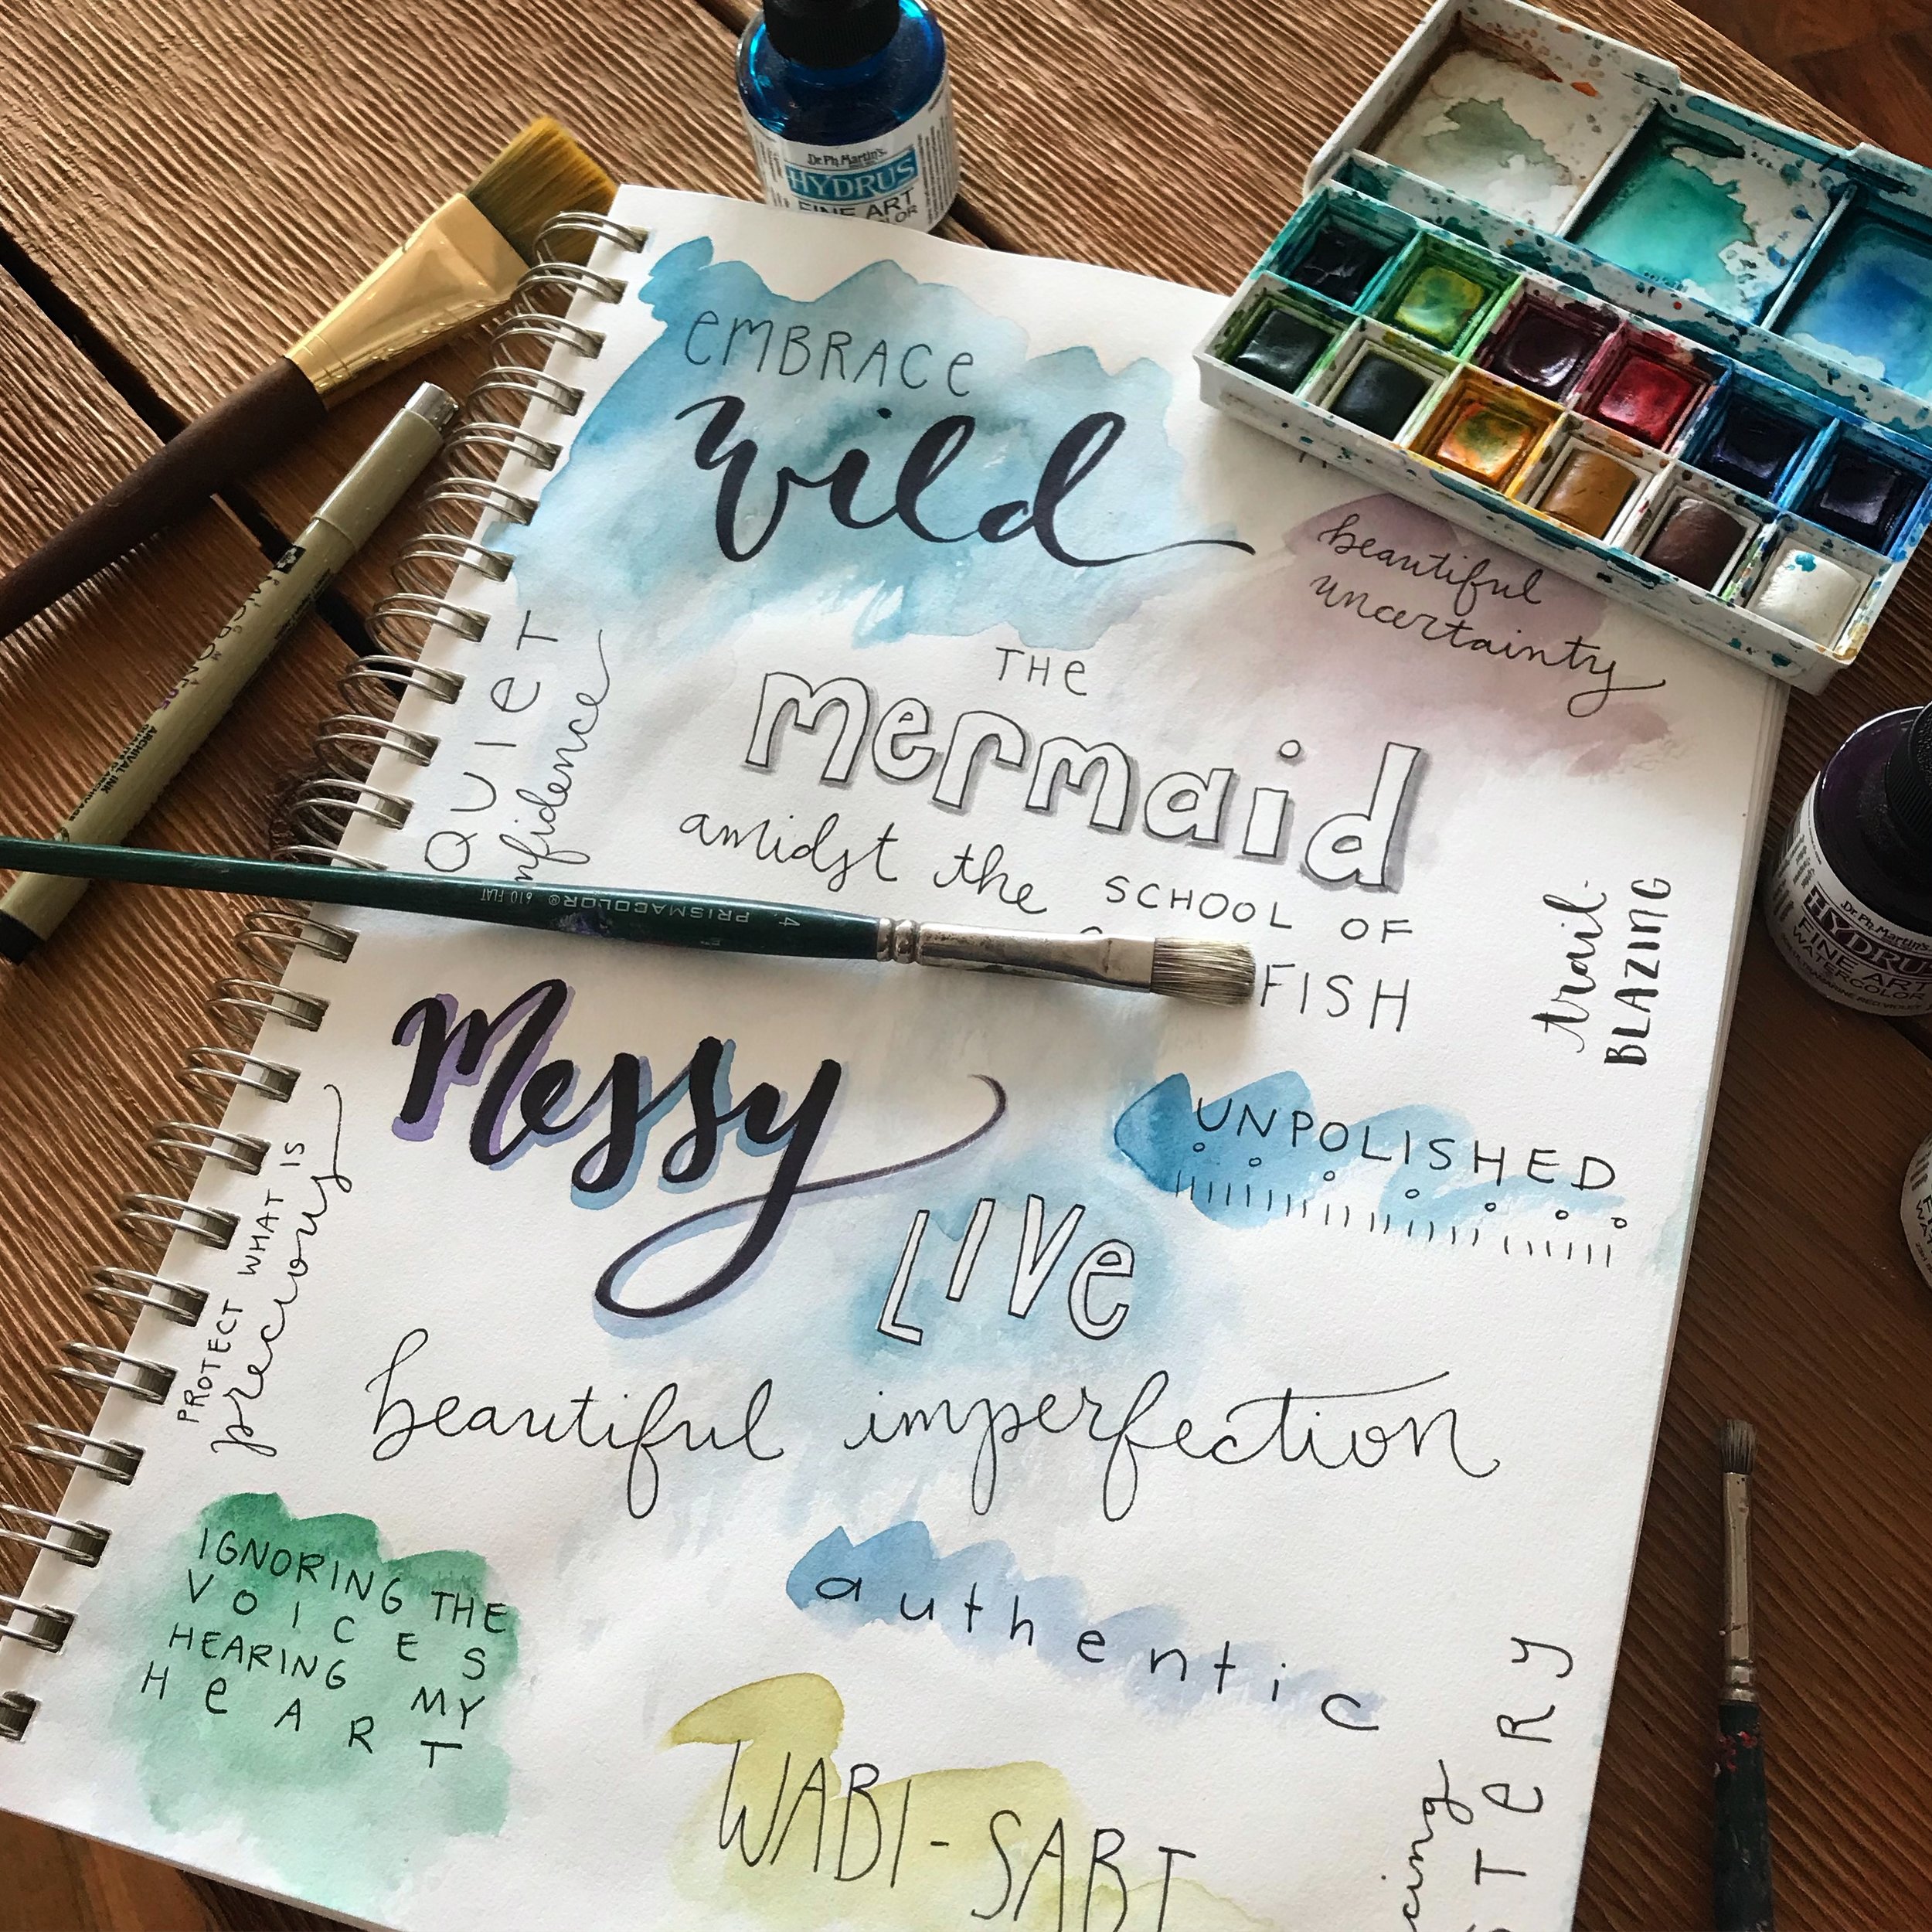 Dr. Ph. Martin's
HYDRUS
FINE ART
EMBRACE
wild
beautiful
uncertainty
QUIET
THE
mermaid
amidst the
SCHOOL OF
FISH
trail-
BLAZING
Dr. Ph. Martin's
HYDRUS
FINE ART
WATERCOLOR
MICRON
ARCHIVAL INK
PRISMACOLOR® 610 FLAT
4
Messy
UNPOLISHED
LIVE
PROTECT WHAT IS
precious
beautiful imperfection
IGNORING THE
VOICES
HEARING MY
HEART
authentic
WABI-SABI